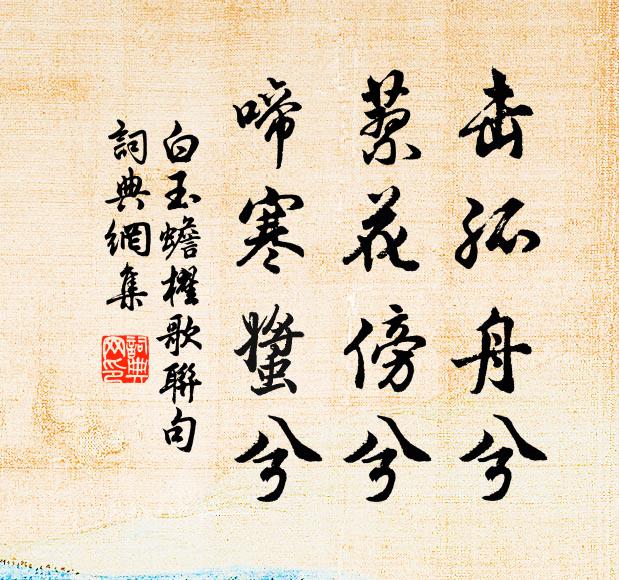 击孤舟兮
蓼花傍兮
啼寒螿兮
白玉蟾櫂歌聯句
詞典網集